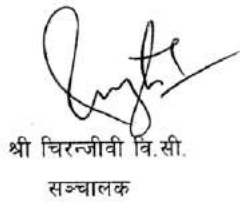 श्री चिरन्जीवी वि.सी.
सञ्चालक